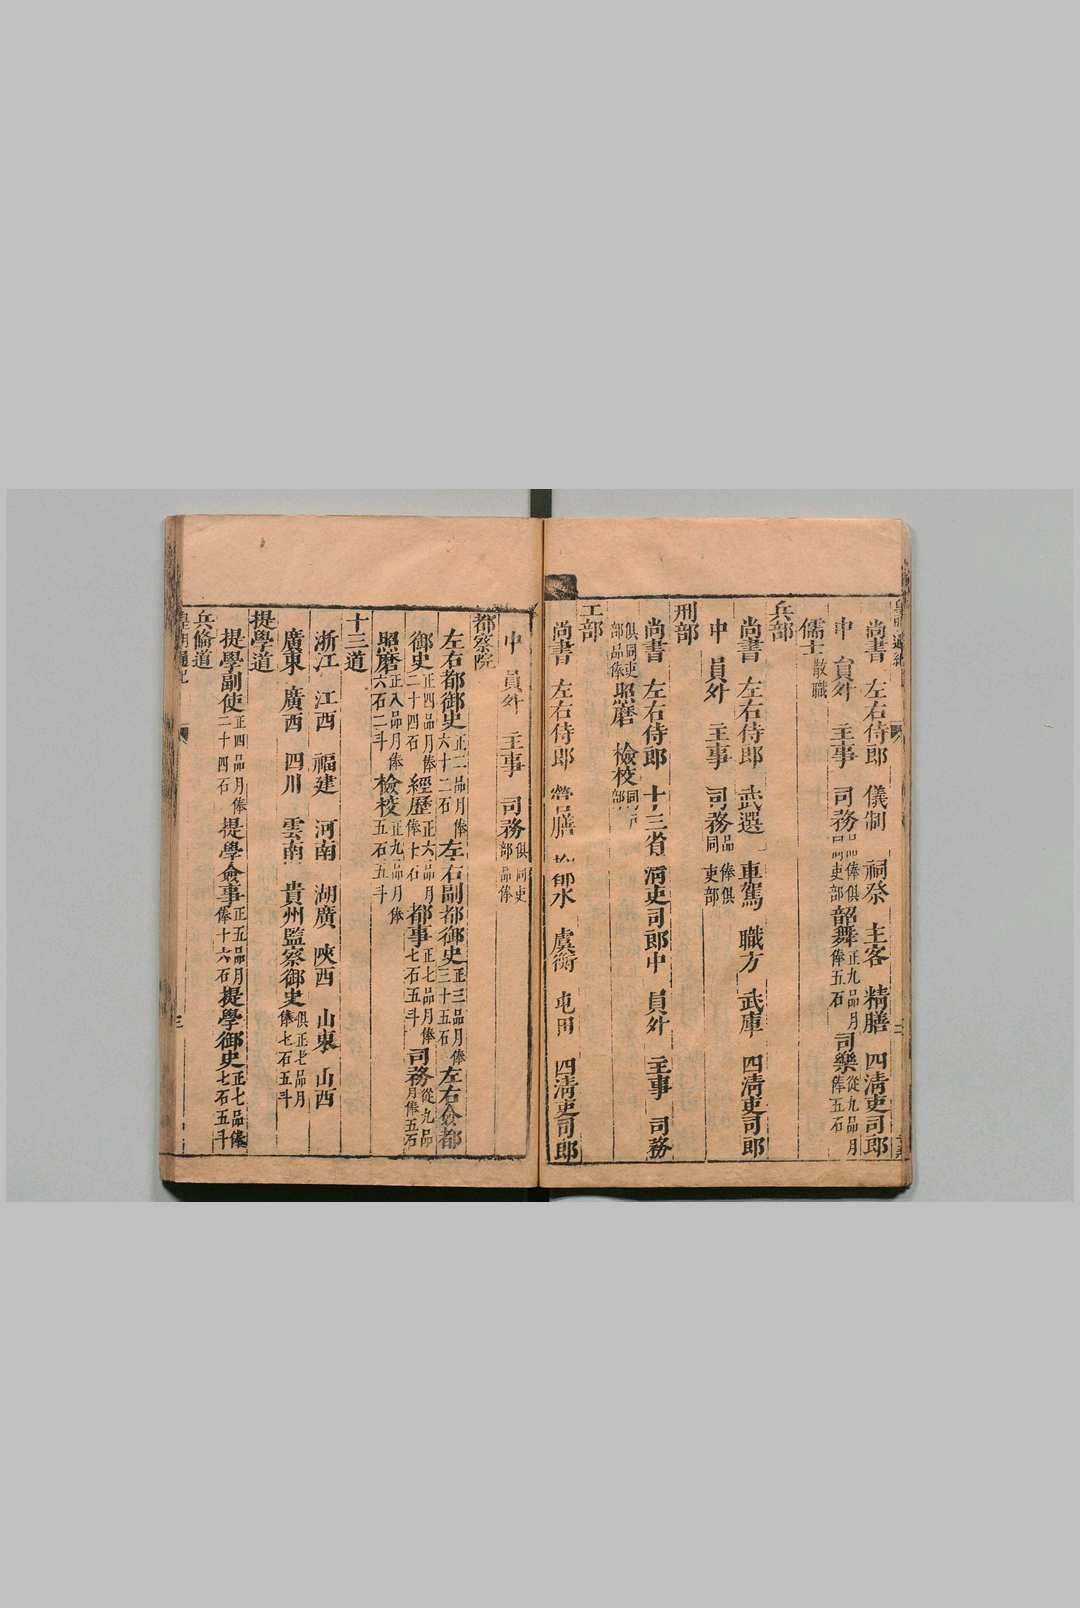 尚書 左右侍郎 儀制 祠祭 主客 精膳 四淸吏司郎
中 員外 主事 司務品俸俱同吏部 韶舞正九品月俸五石 司樂從九品月俸五石
儒士散職
兵部
尚書 左右侍郎 武選 車駕 職方 武庫 四淸吏司郎
中 員外 主事 司務品俸俱同吏部
刑部
尚書 左右侍郎 十三省淸吏司郎中 員外 主事 司務
俱同吏部品俸 照磨 檢校
工部
尚書 左右侍郎 營膳 都水 虞衡 屯田 四淸吏司郎
中 員外 主事 司務俱同吏部品俸
都察院
左右都御史正二品月俸六十二石 左右副都御史正三品月俸三十五石 左右僉都
御史正四品月俸二十四石 經歷正六品月俸十石 都事正七品月俸七石五斗 司務從九品月俸五石
照磨正八品月俸六石二斗 檢校正九品月俸五石五斗
十三道
浙江 江西 福建 河南 湖廣 陝西 山東 山西
廣東 廣西 四川 雲南 貴州監察御史俱正七品月俸七石五斗
提學道
提學副使正四品月俸二十四石 提學僉事正五品月俸十六石 提學御史正七品俸七石五斗
兵備道
皇明通紀 三